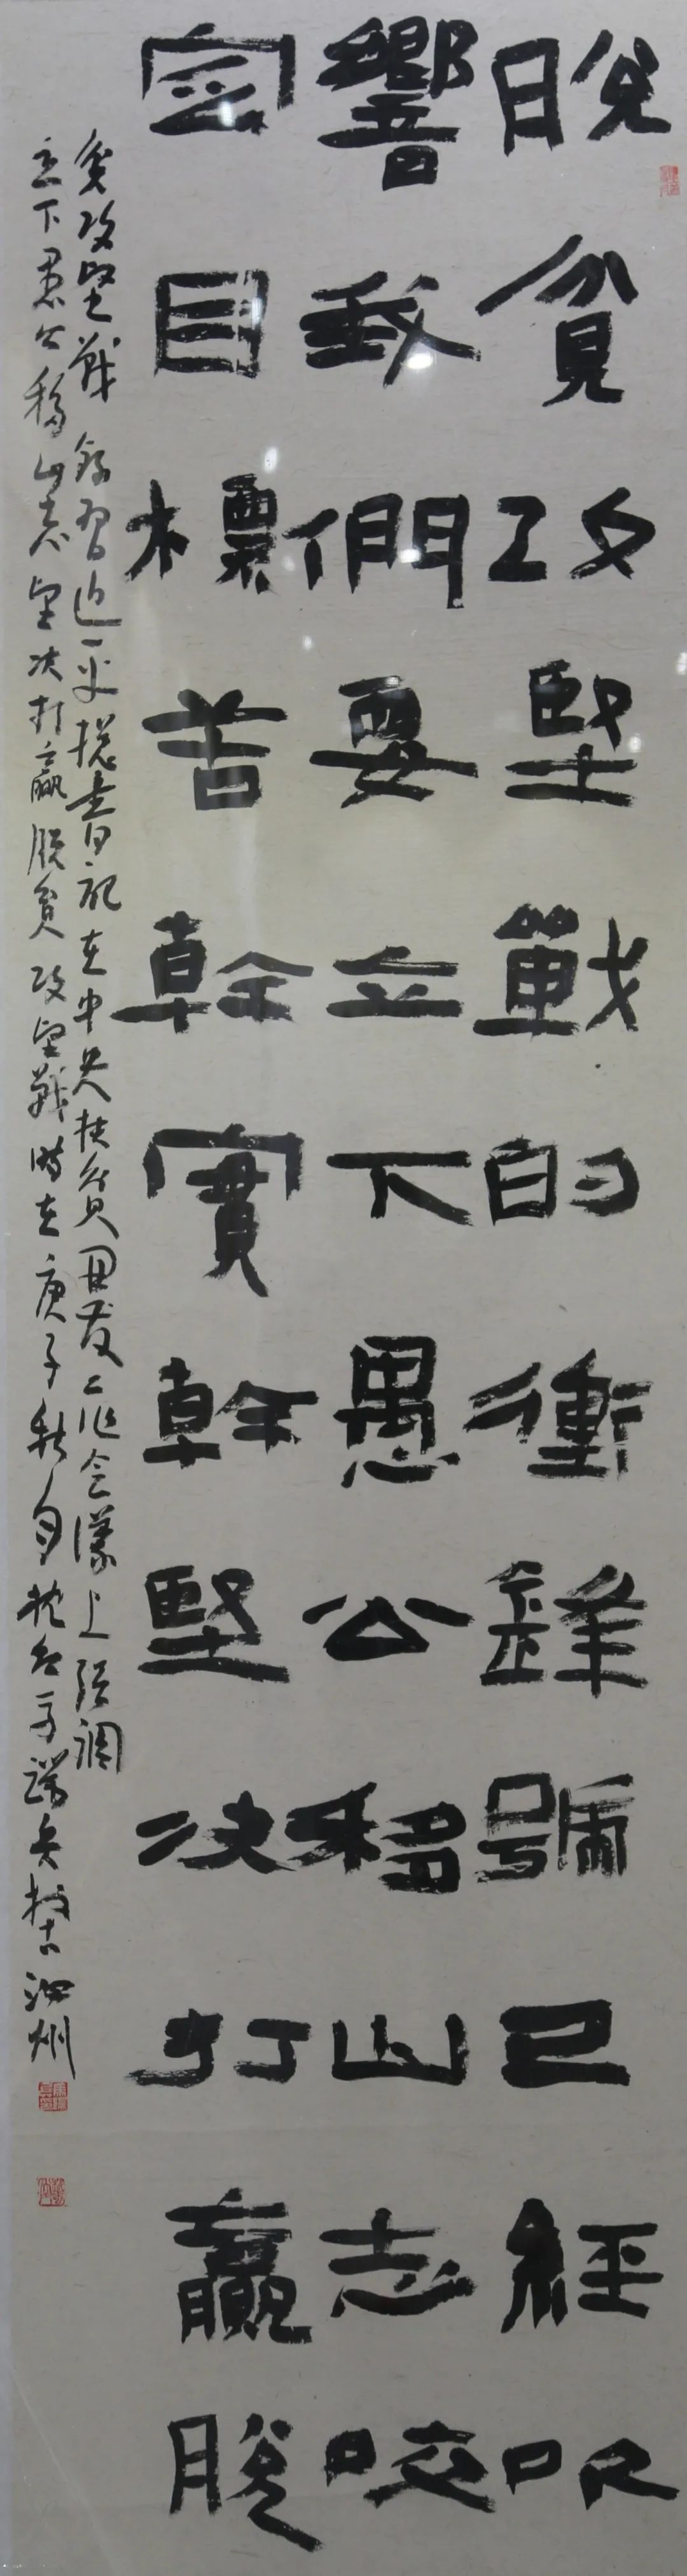 脫貧攻堅戰的衝鋒號已經吹
響我們要立下愚公移山志咬
定目標苦幹實幹堅決打贏脫
貧攻堅戰 錄習近平總書記在中央扶貧開發工作會議上強調
立下愚公移山志堅决打贏脫貧攻堅戰時在庚子秋月